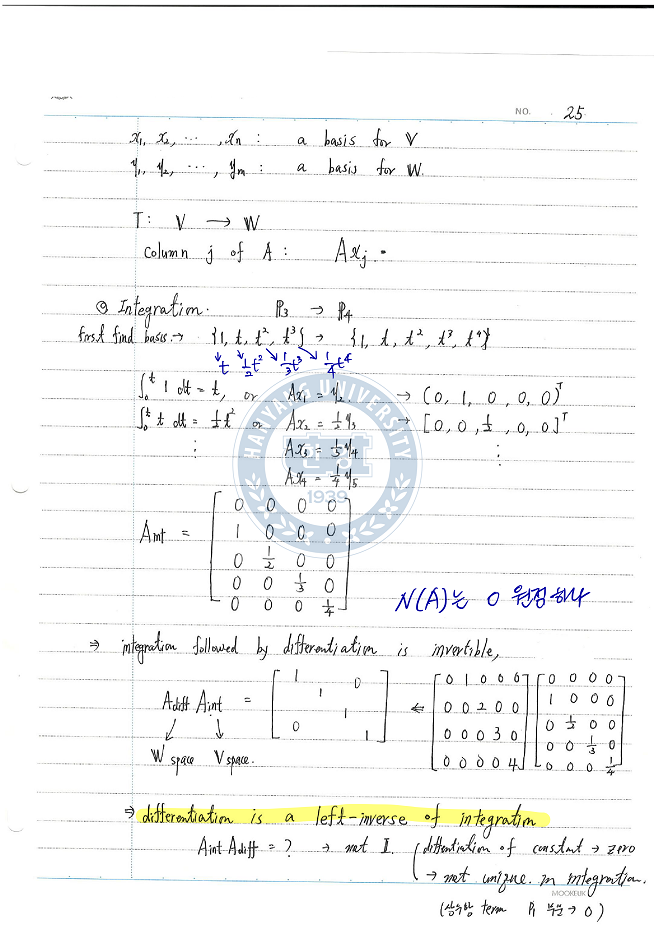 NO. 25
x₁, x₂, ⋯, xn : a basis for V
y₁, y₂, ⋯, ym : a basis for W.
T: V → W
column j of A : Axj
Integration. P₃ → P₄
first find basis → {1, t, t², t³} → {1, t, t², t³, t⁴}
t ½t² ⅓t³ ¼t⁴
∫₀ᵗ 1 dt = t, or Ax₁ = y₂. → (0, 1, 0, 0, 0)ᵀ
∫₀ᵗ t dt = ½t² or Ax₂ = ½y₃ → [0, 0, ½, 0, 0]ᵀ
⋮ Ax₃ = ⅓y₄ ⋮
Ax₄ = ¼y₅
HANYANG UNIVERSITY
한양
1939
Aint =
0 0 0 0
1 0 0 0
0 ½ 0 0
0 0 ⅓ 0
0 0 0 ¼
N(A)는 0 원점하나
⇒ integration followed by differentiation is invertible,
Adiff Aint =
1 0
1
1
0 1
⇐
0 1 0 0 0
0 0 2 0 0
0 0 0 3 0
0 0 0 0 4
0 0 0 0
1 0 0 0
0 ½ 0 0
0 0 ⅓ 0
0 0 0 ¼
W space V space.
⇒ differentiation is a left-inverse of integration
Aint Adiff = ? → not I. (differentiation of constant → zero
→ not unique. in integration.
MOOKEUK
(상수항 term 부분 → 0)